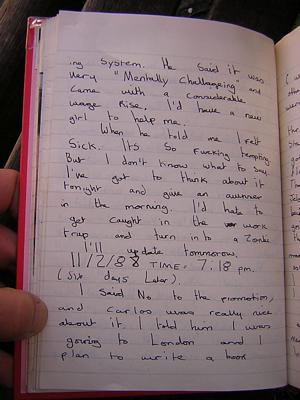 ing system. He said it was
very "Mentally Challengeing" and
came with a considerable
wage rise, I'd have a new
girl to help me.
When he told me I felt
Sick. Its so Fucking tempting
But I don't know what to say.
I've got to think about it
tonight and give an awnser
in the morning. I'd hate to
get caught in the work
trap and turn into a Zombie
I'll update tommorow.
11/2/88 TIME: 7.18 pm.
(Six days Later).
I said No to the promotion,
and Carlos was really nice
about it. I told him I was
going to London and I
plan to write a book